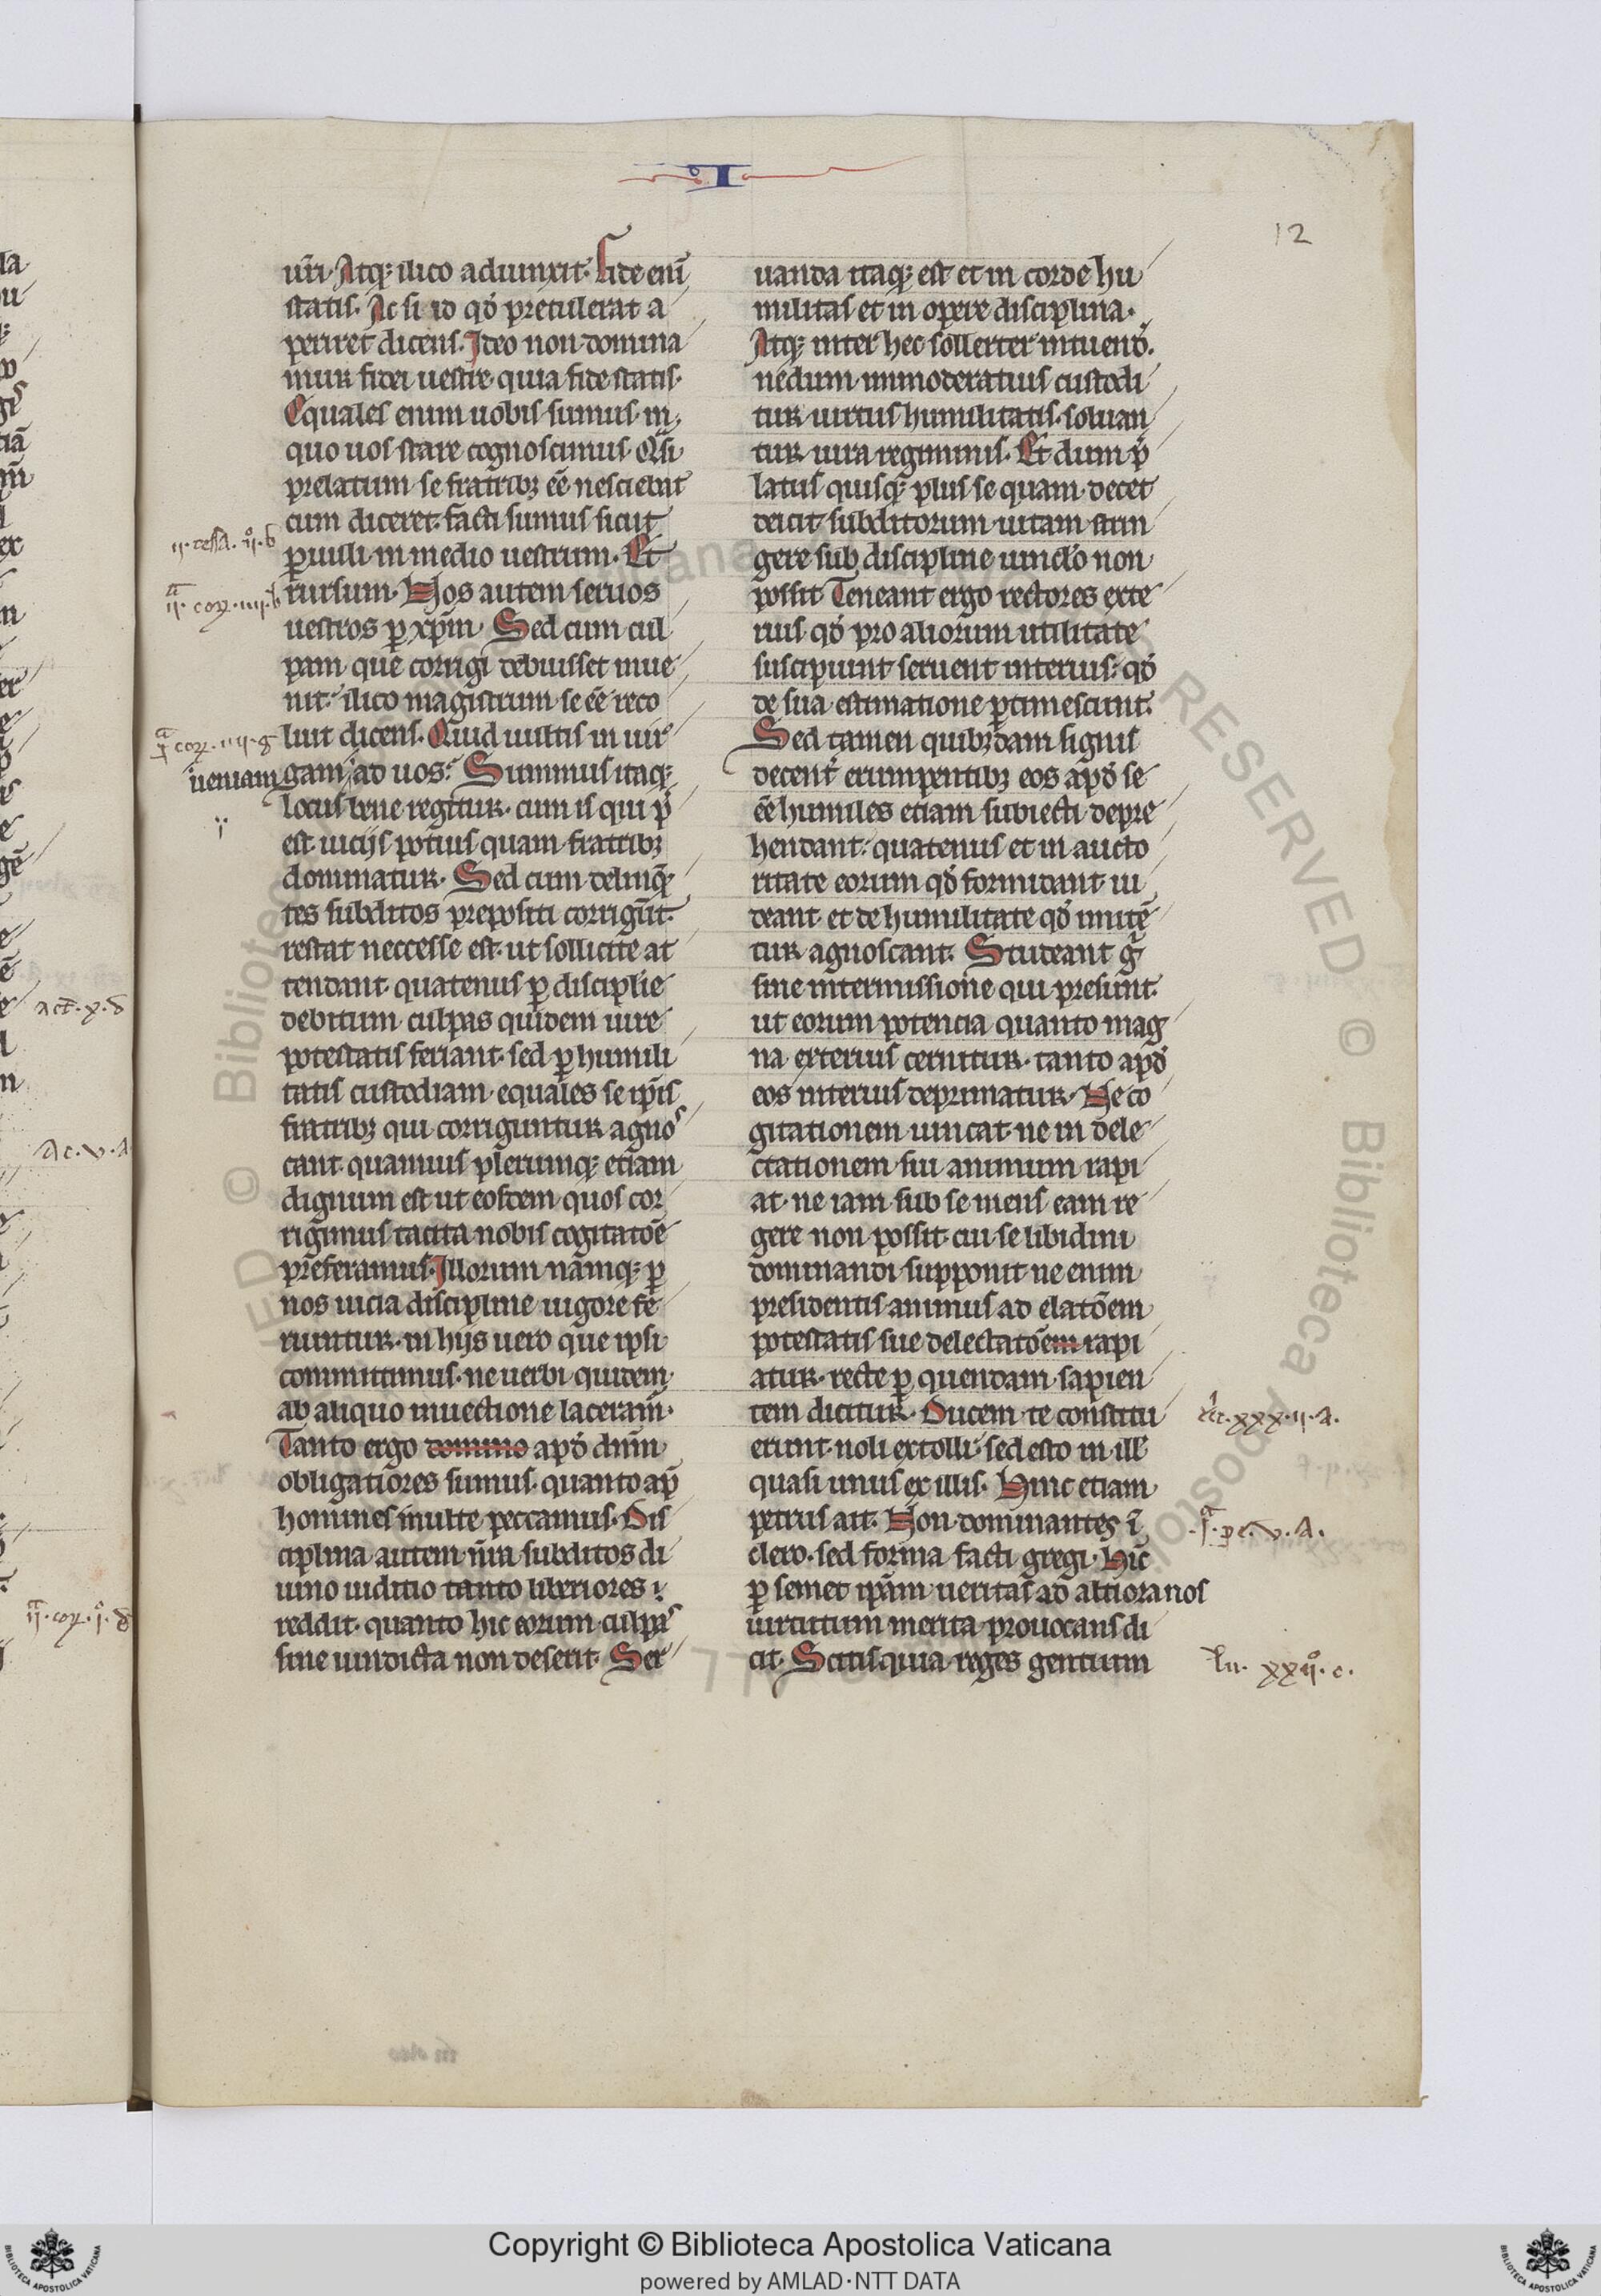 I
12
ur̃i. Atqꝫ ilico adiunxit. fide eni᷒
statis. Ac si id qđ pretulerat a
periret dicens. Ideo non domina
mur fidei uestre quia fide statis.
Equales enim uobis sumus in
quo uos stare cognoscimus. Qͣsi
prelatum se fratribꝫ ee᷒ nesciebat
cum diceret. facti sumus sicut
ꝑuuli in medio uestrum. Et
rursum. Nos autem seruos
uestros ꝑ xp̃m. Sed cum cul
pam que corrigi debuisset inue
nit. ilico magistrum se ee᷒ reco
luit dicens. Quid uultis in uir
gam ad uos. Summus itaqꝫ
locus bene regitur. cum is qui p̃
est uicijs potius quam fratribꝫ
dominatur. Sed cum delinq̃
tes subditos prepositi corrigũt.
restat neccesse est. ut sollicite at
tendant quatenus ꝑ discipli᷒e
debitum culpas quidem iure
potestatis feriant. sed ꝑ humili
tatis custodiam equales se ip̃is
fratribꝫ qui corriguntur agnos
cant. quamuis plerumqꝫ etiam
dignum est ut eosdem quos cor
rigimus tacita nobis cogitatõe
preferamus. Illorum namqꝫ ꝑ
nos uicia discipline uigore fe
riuntur. in hijs uero que ipsi
committimus. ne uerbi quidem
ab aliquo inuectione laceram̃.
Tanto ergo domino apđ dñm
obligatiores sumus. quanto ap̃
homines inulte peccamus. Dis
ciplina autem nr̃a subditos di
uino iuditio tanto liberiores
reddit. quanto hic eorum culpas
sine uindicta non deserit. Ser
ueniam
ij. tessa. ijº. b
ijª. corꝝ. iiij. b
jª corꝝ. iiij. g
uanda itaqꝫ est et in corde hu
militas et in opere disciplina.
Atqꝫ inter hec sollerter intuend̃.
nedum inmoderatius custodi
tur uirtus humilitatis. soluan
tur iura regiminis. Et dum p̃
latus quisqꝫ plus se quam decet
deicit. subditorum uitam strin
gere sub discipline uinclo non
possit. Teneant ergo rectores exte
rius qđ pro aliorum utilitate
suscipiunt seruent interius qđ
de sua estimatione ꝑtimescunt.
Sed tamen quibꝫdam signis
decent᷑ erumpentibꝫ eos apđ se
ee᷒ humiles etiam subiecti depre
hendant. quatenus et in aucto
ritate eorum qđ formidant ui
deant. et de humilitate qđ imitẽ
tur agnoscant. Studeant g͛
sine intermissione qui presunt.
ut eorum potencia quanto mag
na exterius cernitur. tanto apđ
eos interius deprimatur. Ne co
gitationem uincat ne in dele
ctationem sui animum rapi
at. ne iam sub se mens eam re
gere non possit. cui se libidini
dominandi supponit. ne enim
presidentis animus ad elatõem
potestatis sue delectatõem rapi
atur. recte ꝑ quendam sapien
tem dicitur. Ducem te constitu
erunt. noli extolli. sed esto in ill᷑
quasi unus ex illis. Hinc etiam
petrus ait. Non dominantes ĩ
clero. sed forma facti gregi. Hic̃
ꝑ semet ip̃am ueritas ad altiora nos
uirtutum merita prouocans di
cit. Scitis quia reges gentium
xxx. ij. a.
jª. pe. v. a.
lu. xxijº. c.
act̃. x. d
ac. v. a
ijª. corꝝ. jº. d
Copyright © Biblioteca Apostolica Vaticana
powered by AMLAD·NTT DATA